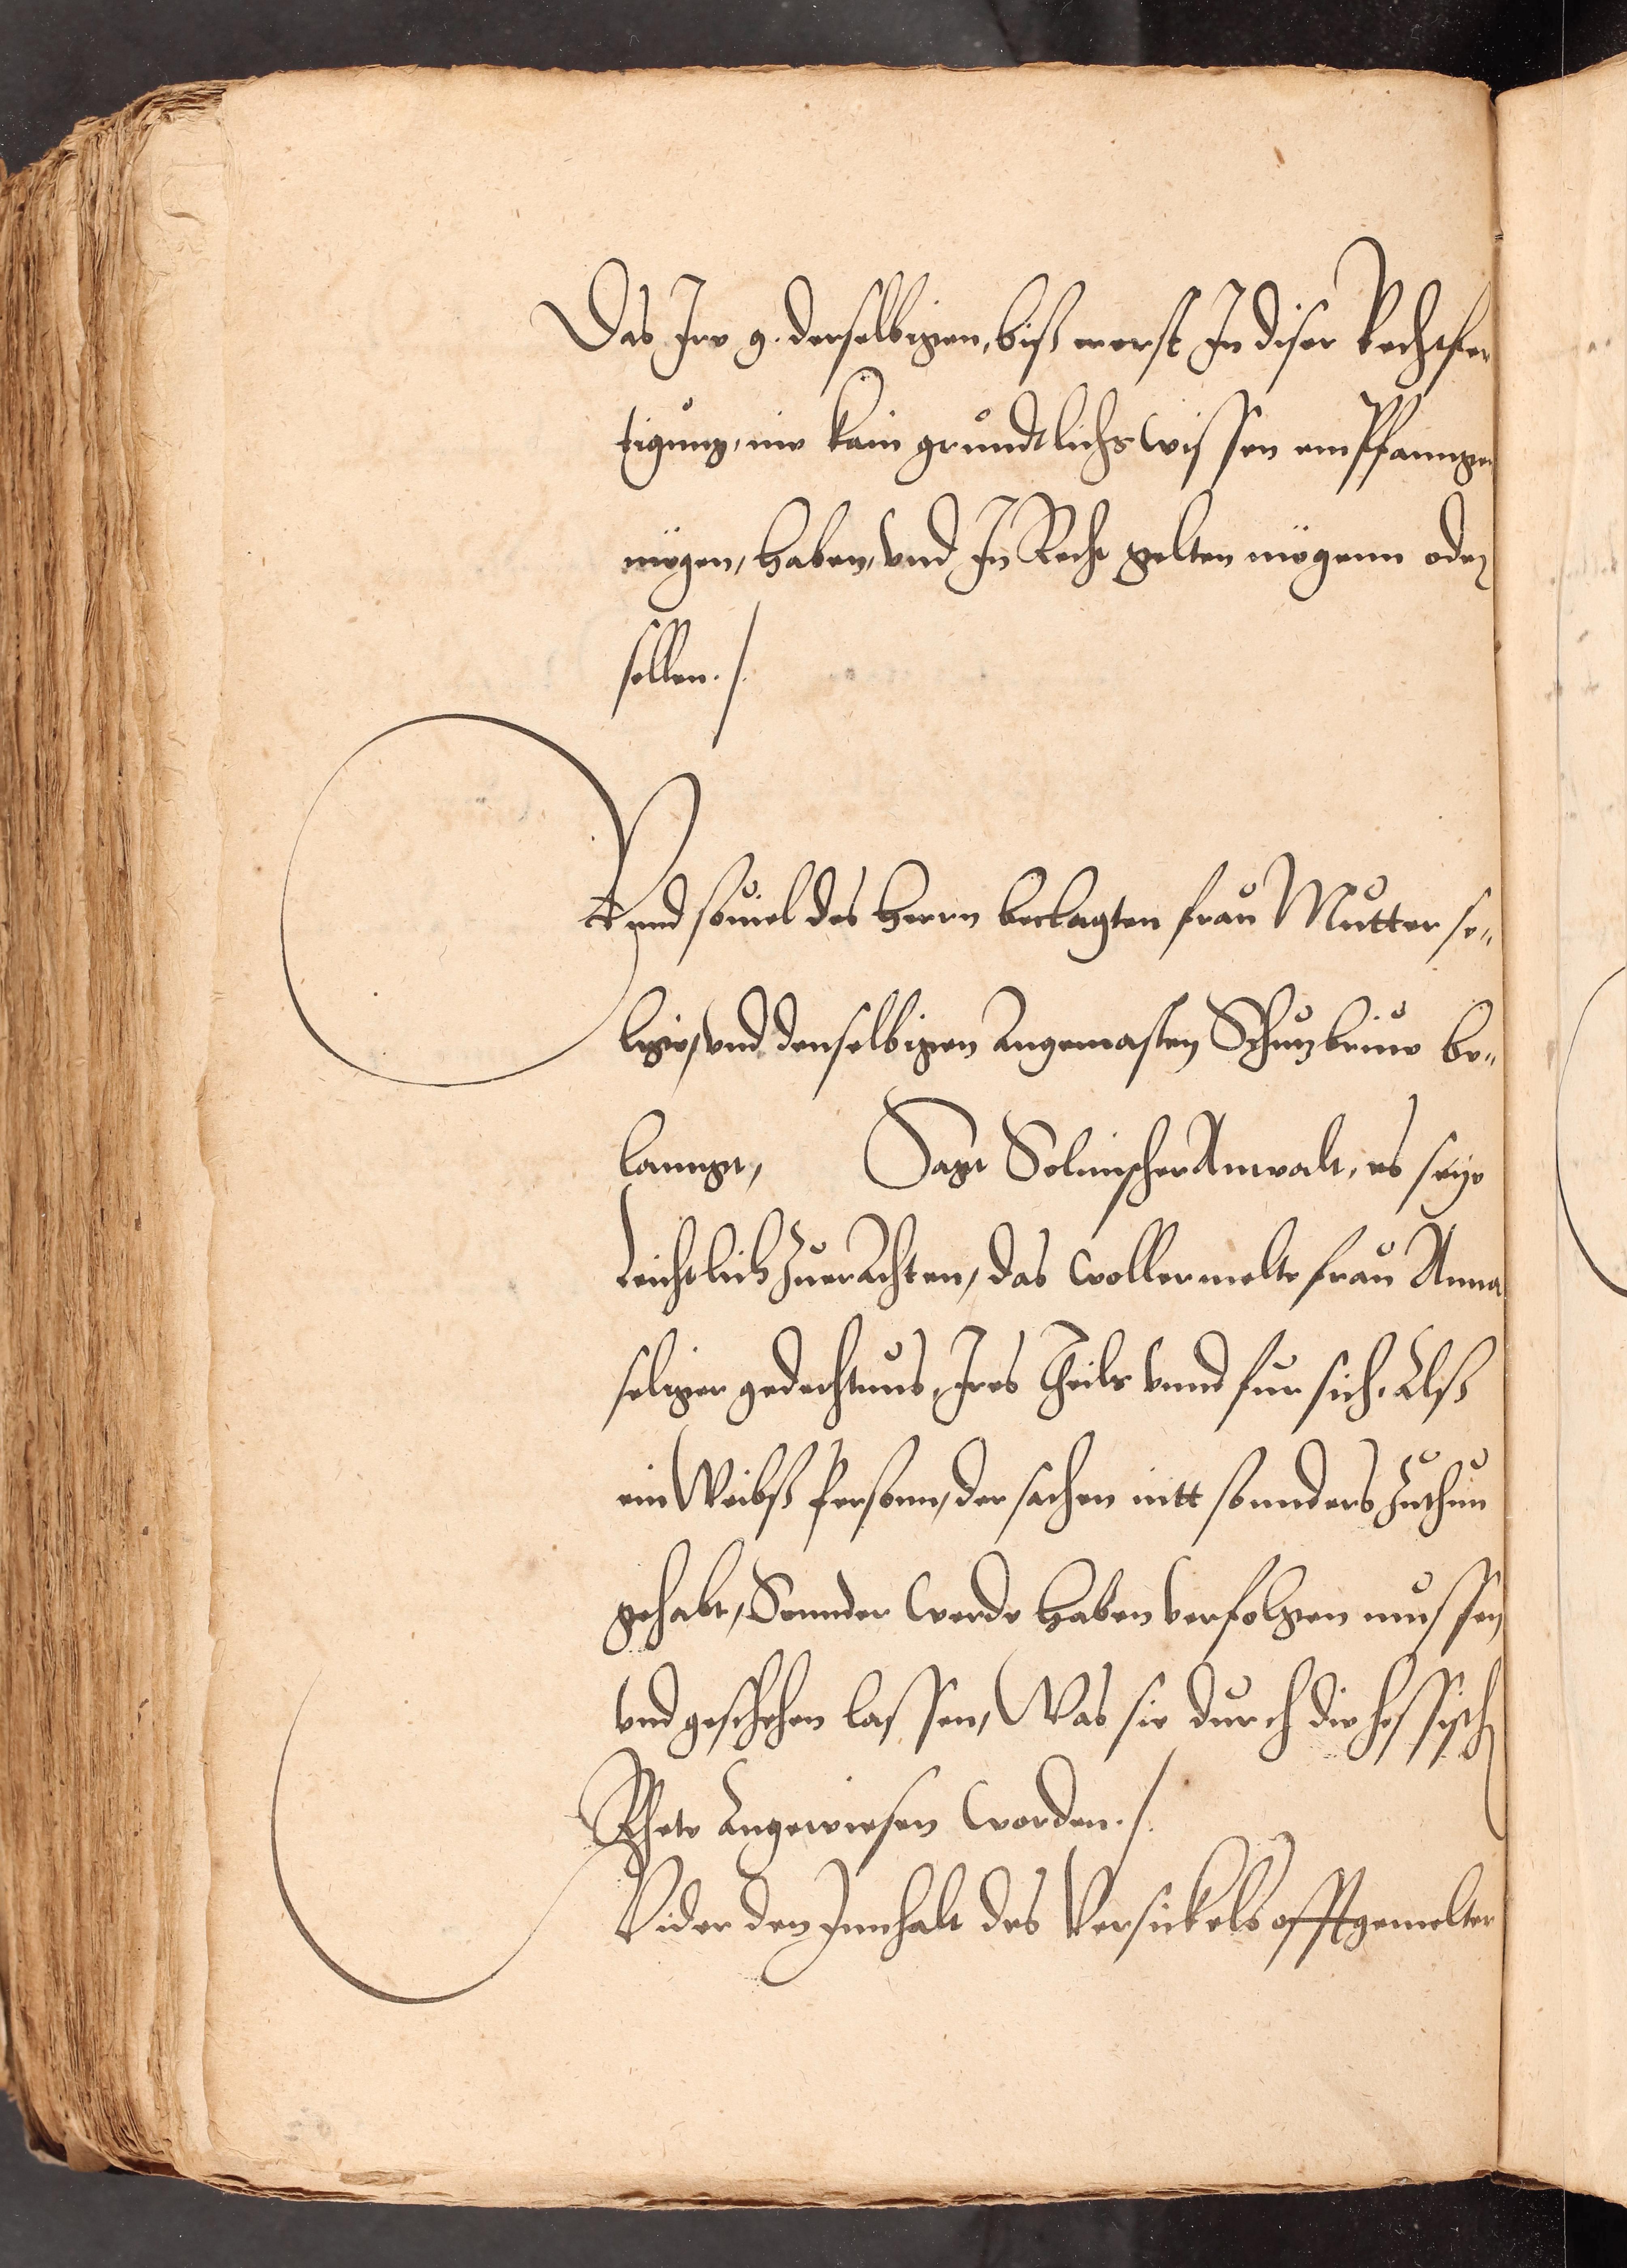 Das Ire g. derselbigen, biß ererst In diser Rechtfer
tigung, nie kain gründtlichs wissen empffanngen
mögen, haben, vnd In Recht gelten mögenn oder
sollen. /.
Vnnd souiel des Herrn beclagten frau Mutter se„
lige, vnd denselbigen angemasten Schutzbriue be„
lanngt, Sagt Solmischer Anwalt, es seye
Leichtlich Zuerachten, das wollermelte frau Anna
seliger gedechtnus, Ires Theils vnnd fur sich, Alß
ein Weibß Person, der sachen nitt sonnders Zuthun
gehabt, Sonnder werde haben verfolgen mussen
vnd geschehen lassen, Was sie durch die hessisch
Rhete Angewiesen worden. /.
Wider den Innhalt des Versickels offtgemelter